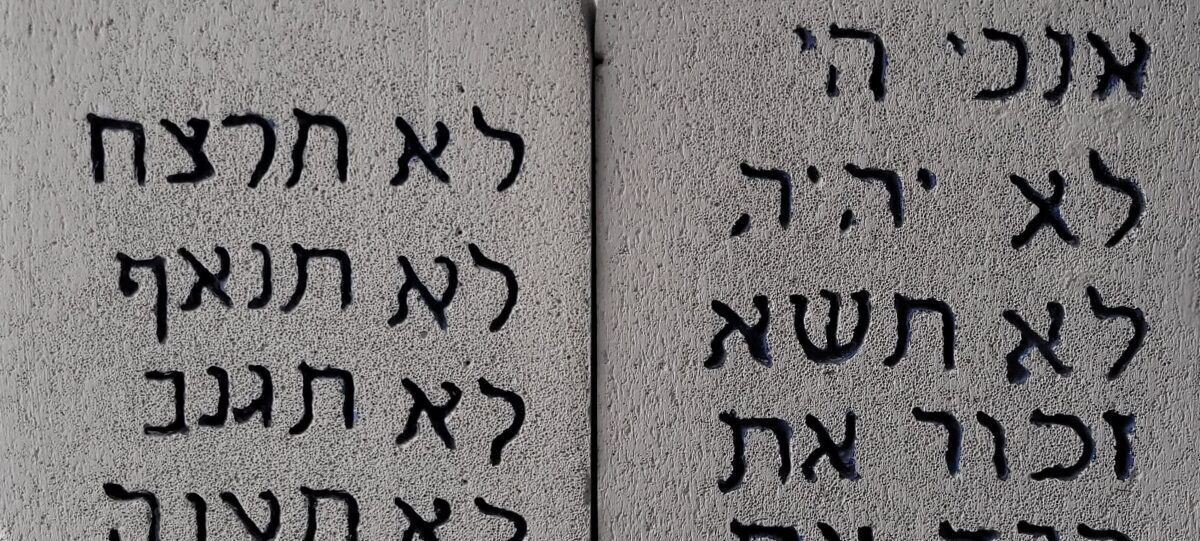 אנכי הי
לא יהיה
לא תשא
זכור את
כבד את
לא תרצח
לא תנאף
לא תגנב
לא תענה